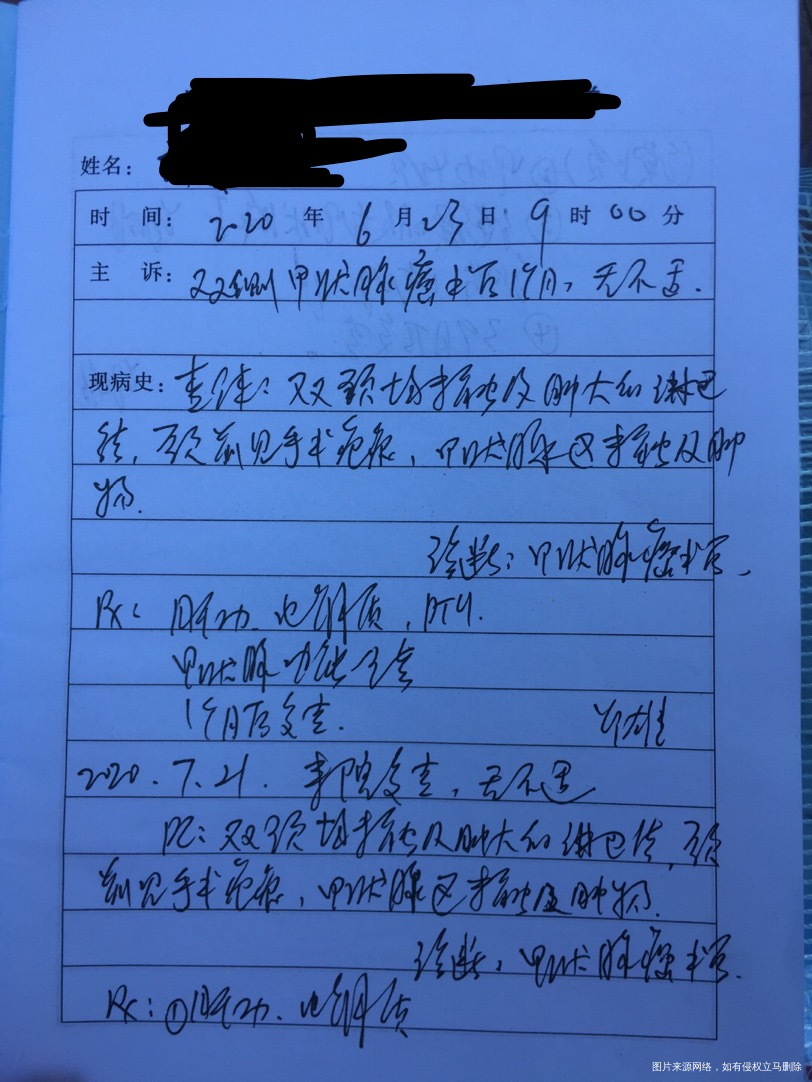 姓名:
时 间: 2020 年 6 月 23 日 9 时 00 分
主 诉: 双侧甲状腺癌术后1个月, 无不适.
现病史: 查体: 双颈均未触及肿大的淋巴
结, 颈前见手术疤痕, 甲状腺区未触及肿
物.
诊断: 甲状腺癌术后,
Rx: 肝功. 电解质, PTH.
甲状腺功能全套
1个月后复查.
2020.7.21. 来院复查, 无不适
PE: 双颈均未触及肿大的淋巴结, 颈
前见手术疤痕, 甲状腺区未触及肿物.
诊断: 甲状腺癌术后.
Rx: ①肝功. 电解质
图片来源网络，如有侵权立马删除